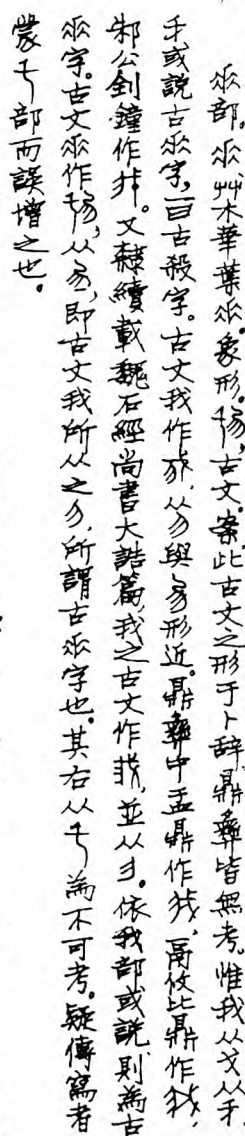 𠂹部。𠂹艸木華葉𠂹。象形。𠣔,古文。案:此古文之形于卜辞鼎彝皆無考。惟我从戈从
𠂹。或說古𠂹字,一曰古殺字。古文我作𢦠,从勿與㐱形近。鼎彝中盂鼎作我,鬲攸比鼎作我,
邾公釗鐘作我。又隸續載魏石經尚書大誥篇,我之古文作我,並从彡。依我部或說則為古
𠂹字。古文𠂹作𠣔,从㐱,即古文我所从之勿,所謂古𠂹字也。其右从乇為不可考。疑傳寫者
蒙乇部而誤增之也。